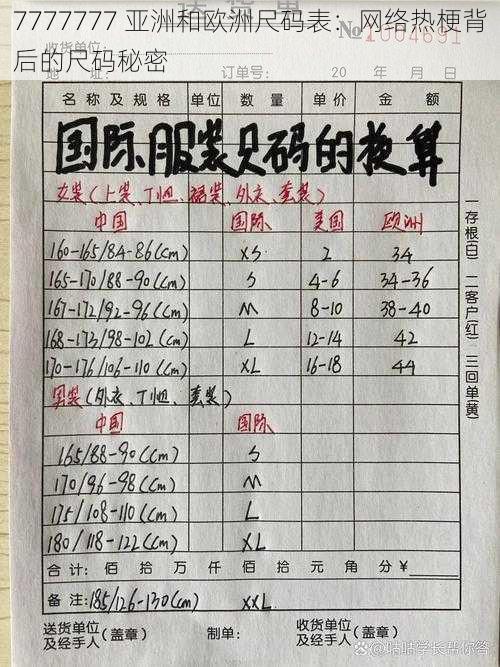 7777777 亚洲和欧洲尺码表：网络热梗背后的尺码秘密
送货单
收货单位
№1004691
地址： 订单号： 20 年 月 日
名称及规格 单位 数量 单价 金额
国际服装尺码的换算
女装(上装、T恤、裙装、外衣、套装)
中国 国际 美国 欧洲
160-165/84-86(cm) XS 2 34
165-170/88-90(cm) S 4-6 34-36
167-172/92-96(cm) M 8-10 38-40
168-173/98-102(cm) L 12-14 42
170-176/106-110(cm) XL 16-18 44
男装(外衣、T恤、套装)
中国 国际
165/88-90(cm) S
170/96-98(cm) M
175/108-110(cm) L
180/118-122(cm) XL
合计： 佰 拾 万 仟 佰 拾 元 角 分 ¥
备注：185/126-130(cm) XXL
送货单位及经手人(盖章) 制单： 收货单位及经手人(盖章)
一存根(白) 二客户(红) 三回单(黄)
@咕咕学长帮你答